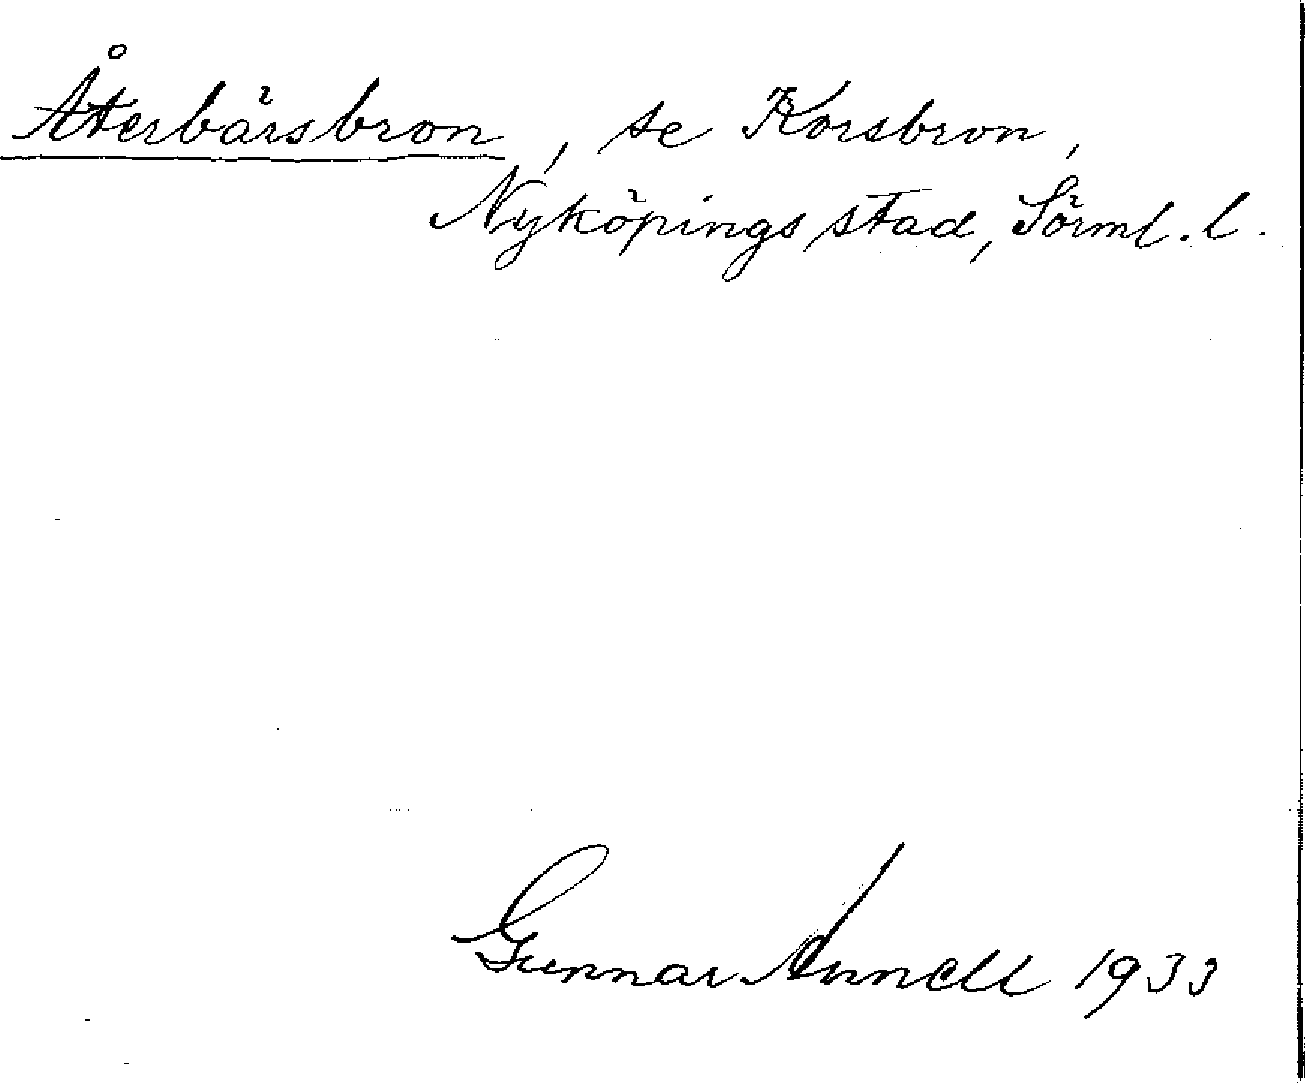 Återbärsbron, se Korsbron,
Nyköpings stad, Sörml. l.
Gunnar Annell 1933